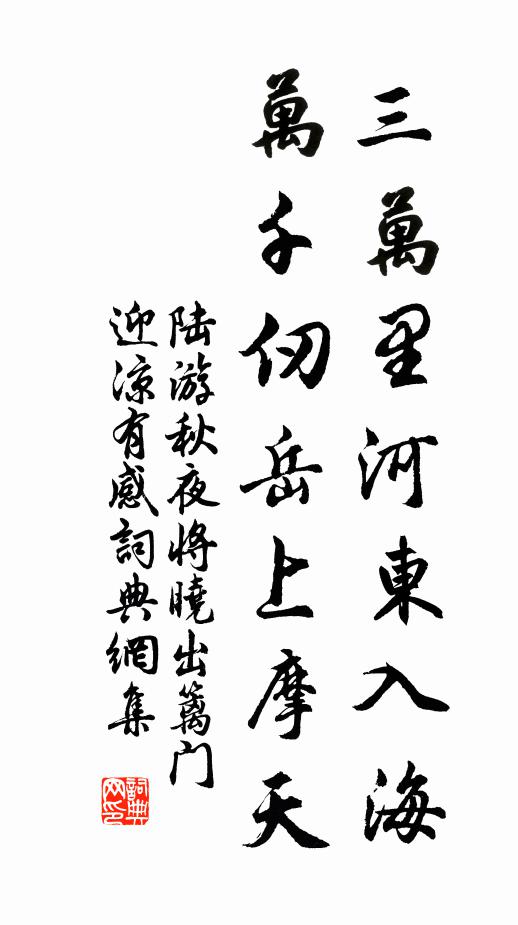 三萬里河東入海
萬千仞岳上摩天
陆游秋夜将曉出篱门
迎凉有感詞典網集
詞典
网印